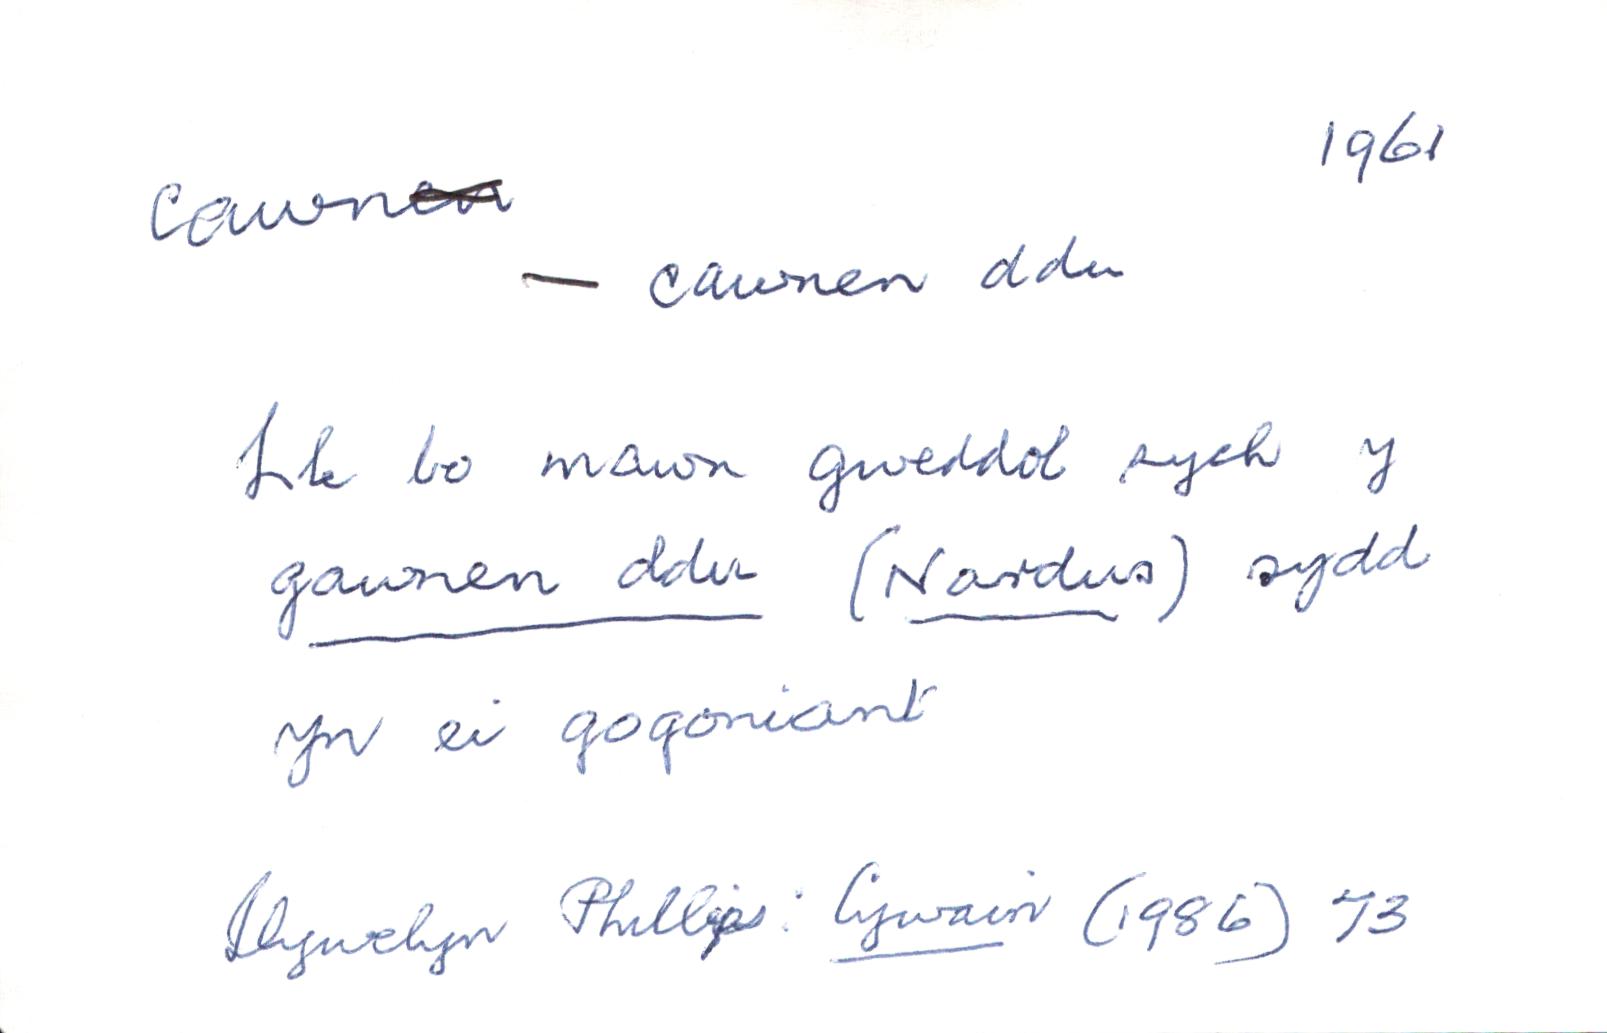 1961
cawnen
— cawnen ddu
Lle bo mawn gweddol sych y
gawnen ddu (Nardus) sydd
yn ei gogoniant
Llywelyn Phillips: Cywain (1986) 73